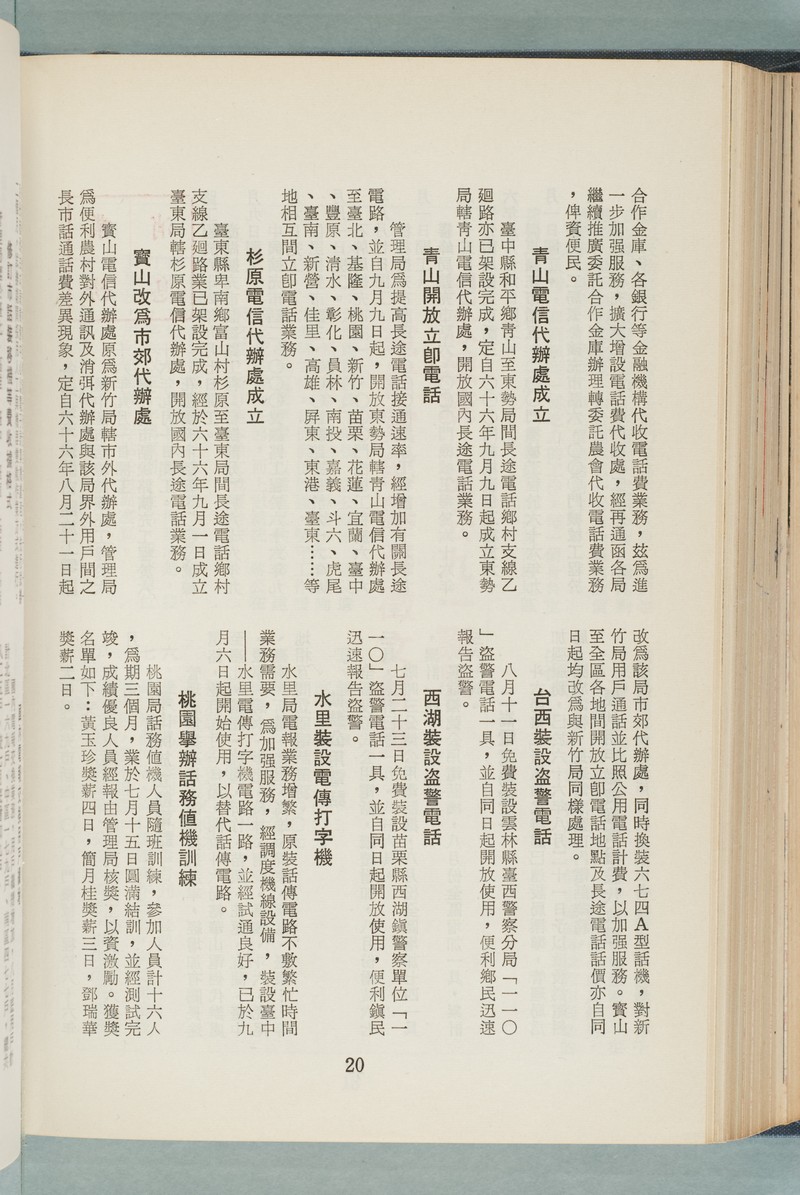 合作金庫、各銀行等金融機構代收電話費業務，茲為進
一步加强服務，擴大增設電話費代收處，經再通函各局
繼續推廣委託合作金庫辦理轉委託農會代收電話費業務
，俾資便民。
青山電信代辦處成立
臺中縣和平鄉青山至東勢局間長途電話鄉村支線乙
廻路亦已架設完成，定自六十六年九月九日起成立東勢
局轄青山電信代辦處，開放國內長途電話業務。
青山開放立卽電話
管理局為提高長途電話接通速率，經增加有關長途
電路，並自九月九日起，開放東勢局轄青山電信代辦處
至臺北、基隆、桃園、新竹、苗栗、花蓮、宜蘭、臺中
、豐原、清水、彰化、員林、南投、嘉義、斗六、虎尾
、臺南、新營、佳里、高雄、屏東、東港、臺東……等
地相互間立卽電話業務。
杉原電信代辦處成立
臺東縣卑南鄉富山村杉原至臺東局間長途電話鄉村
支線乙廻路業已架設完成，經於六十六年九月一日成立
臺東局轄杉原電信代辦處，開放國內長途電話業務。
寶山改為市郊代辦處
寶山電信代辦處原為新竹局轄市外代辦處，管理局
為便利農村對外通訊及消弭代辦處與該局界外用戶間之
長市話通話費差異現象，定自六十六年八月二十一日起
改為該局市郊代辦處，同時換裝六七四A型話機，對新
竹局用戶通話並比照公用電話計費，以加强服務。寶山
至全區各地間開放立卽電話地點及長途電話話價亦自同
日起均改為與新竹局同樣處理。
台西裝設盜警電話
八月十一日免費裝設雲林縣臺西警察分局「一一〇
」盜警電話一具，並自同日起開放使用，便利鄉民迅速
報告盜警。
西湖裝設盜警電話
七月二十三日免費裝設苗栗縣西湖鎮警察單位「一
一〇」盜警電話一具，並自同日起開放使用，便利鎮民
迅速報告盜警。
水里裝設電傳打字機
水里局電報業務增繁，原裝話傳電路不敷繁忙時間
業務需要，為加强服務，經調度機線設備，裝設臺中
——水里電傳打字機電路一路，並經試通良好，已於九
月六日起開始使用，以替代話傳電路。
桃園舉辦話務值機訓練
桃園局話務值機人員隨班訓練，參加人員計十六人
，為期三個月，業於七月十五日圓滿結訓，並經測試完
竣，成績優良人員經報由管理局核獎，以資激勵。獲獎
名單如下：黃玉珍獎薪四日，簡月桂獎薪三日，鄧瑞華
獎薪二日。
20